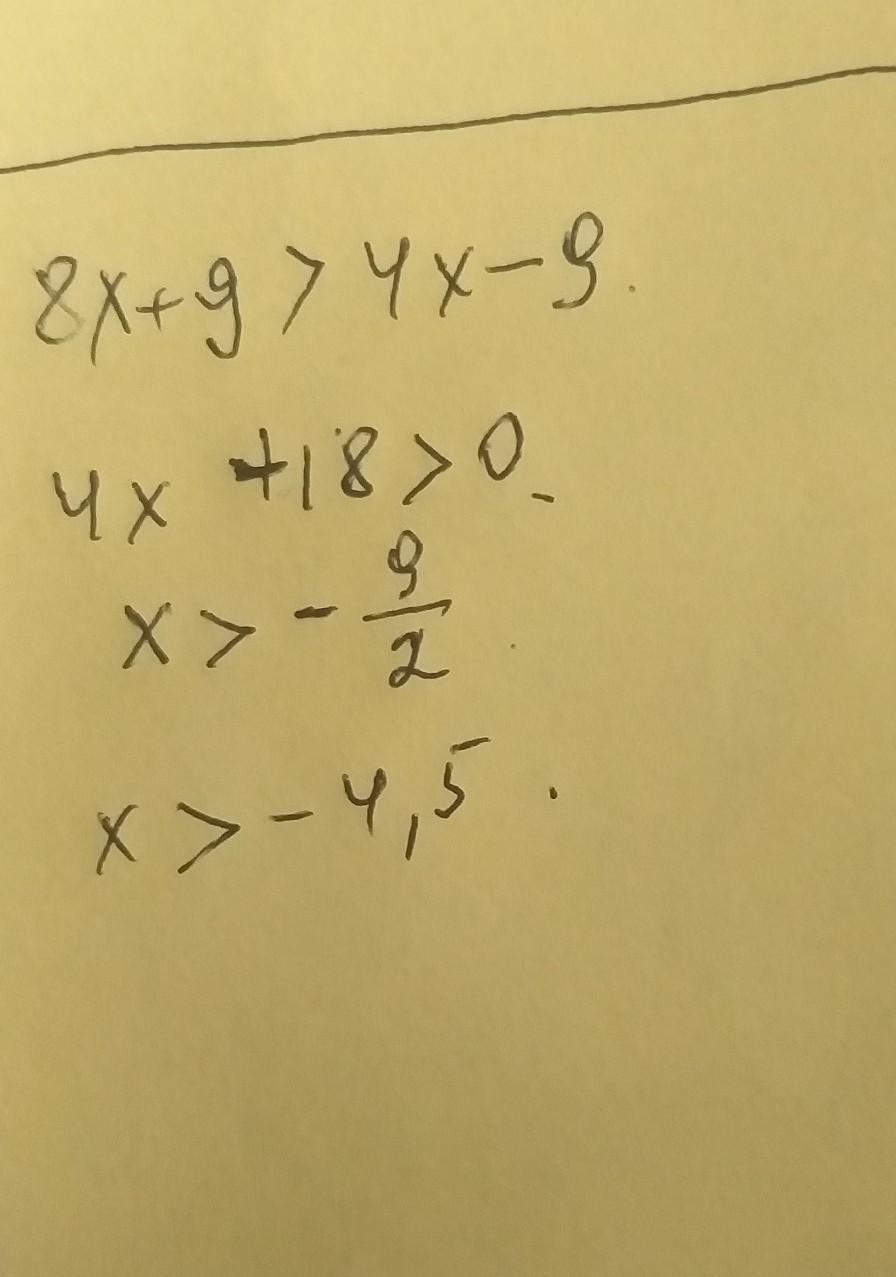 8x+9 > 4x-9.
4x +18 > 0.
x > -9/2.
x > -4,5.